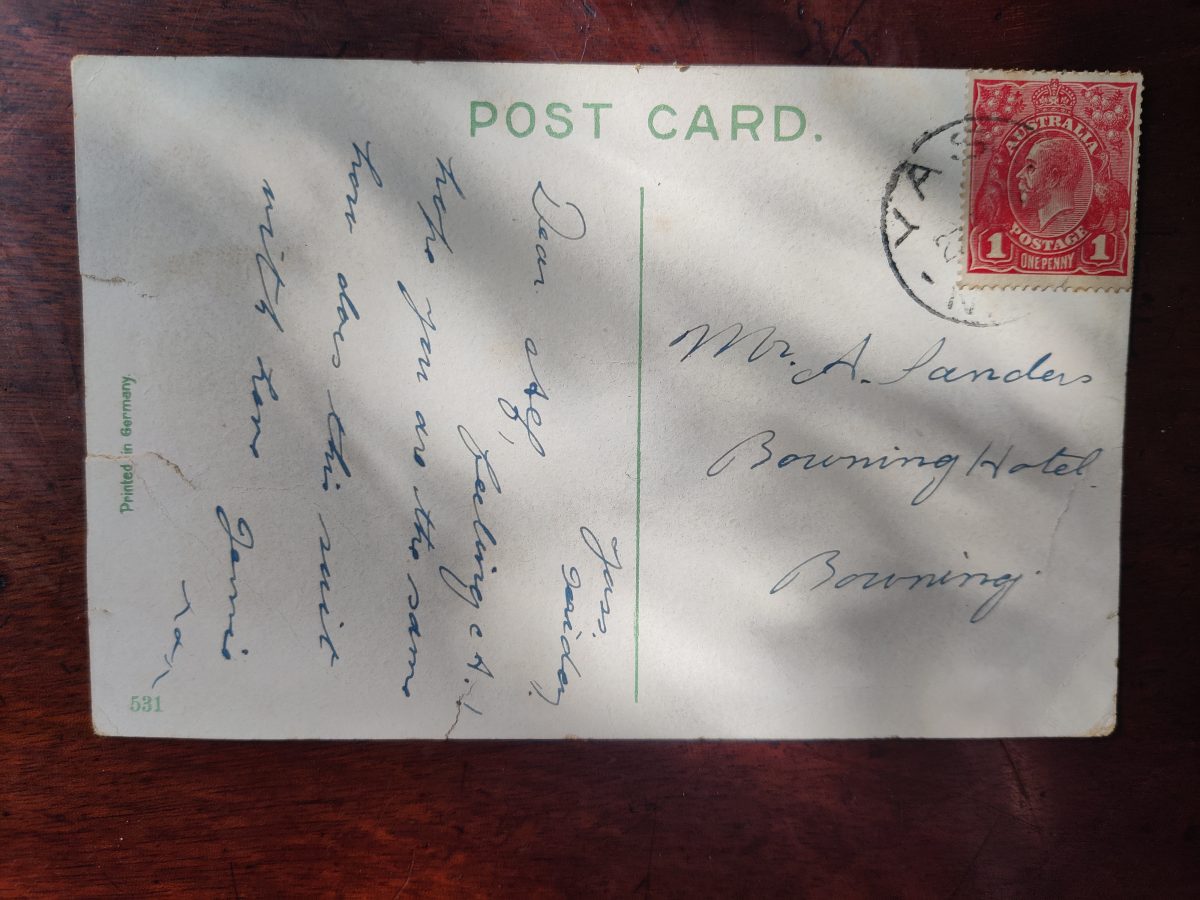 POST CARD.
AUSTRALIA
POSTAGE
1 1
ONE PENNY
YASS
Mr. A. Sanders
Bowning Hotel.
Bowning.
Yass
Friday
Dear Alf,
feeling A.1
hope you are the same
how does this suit
with love
Printed in Germany.
531